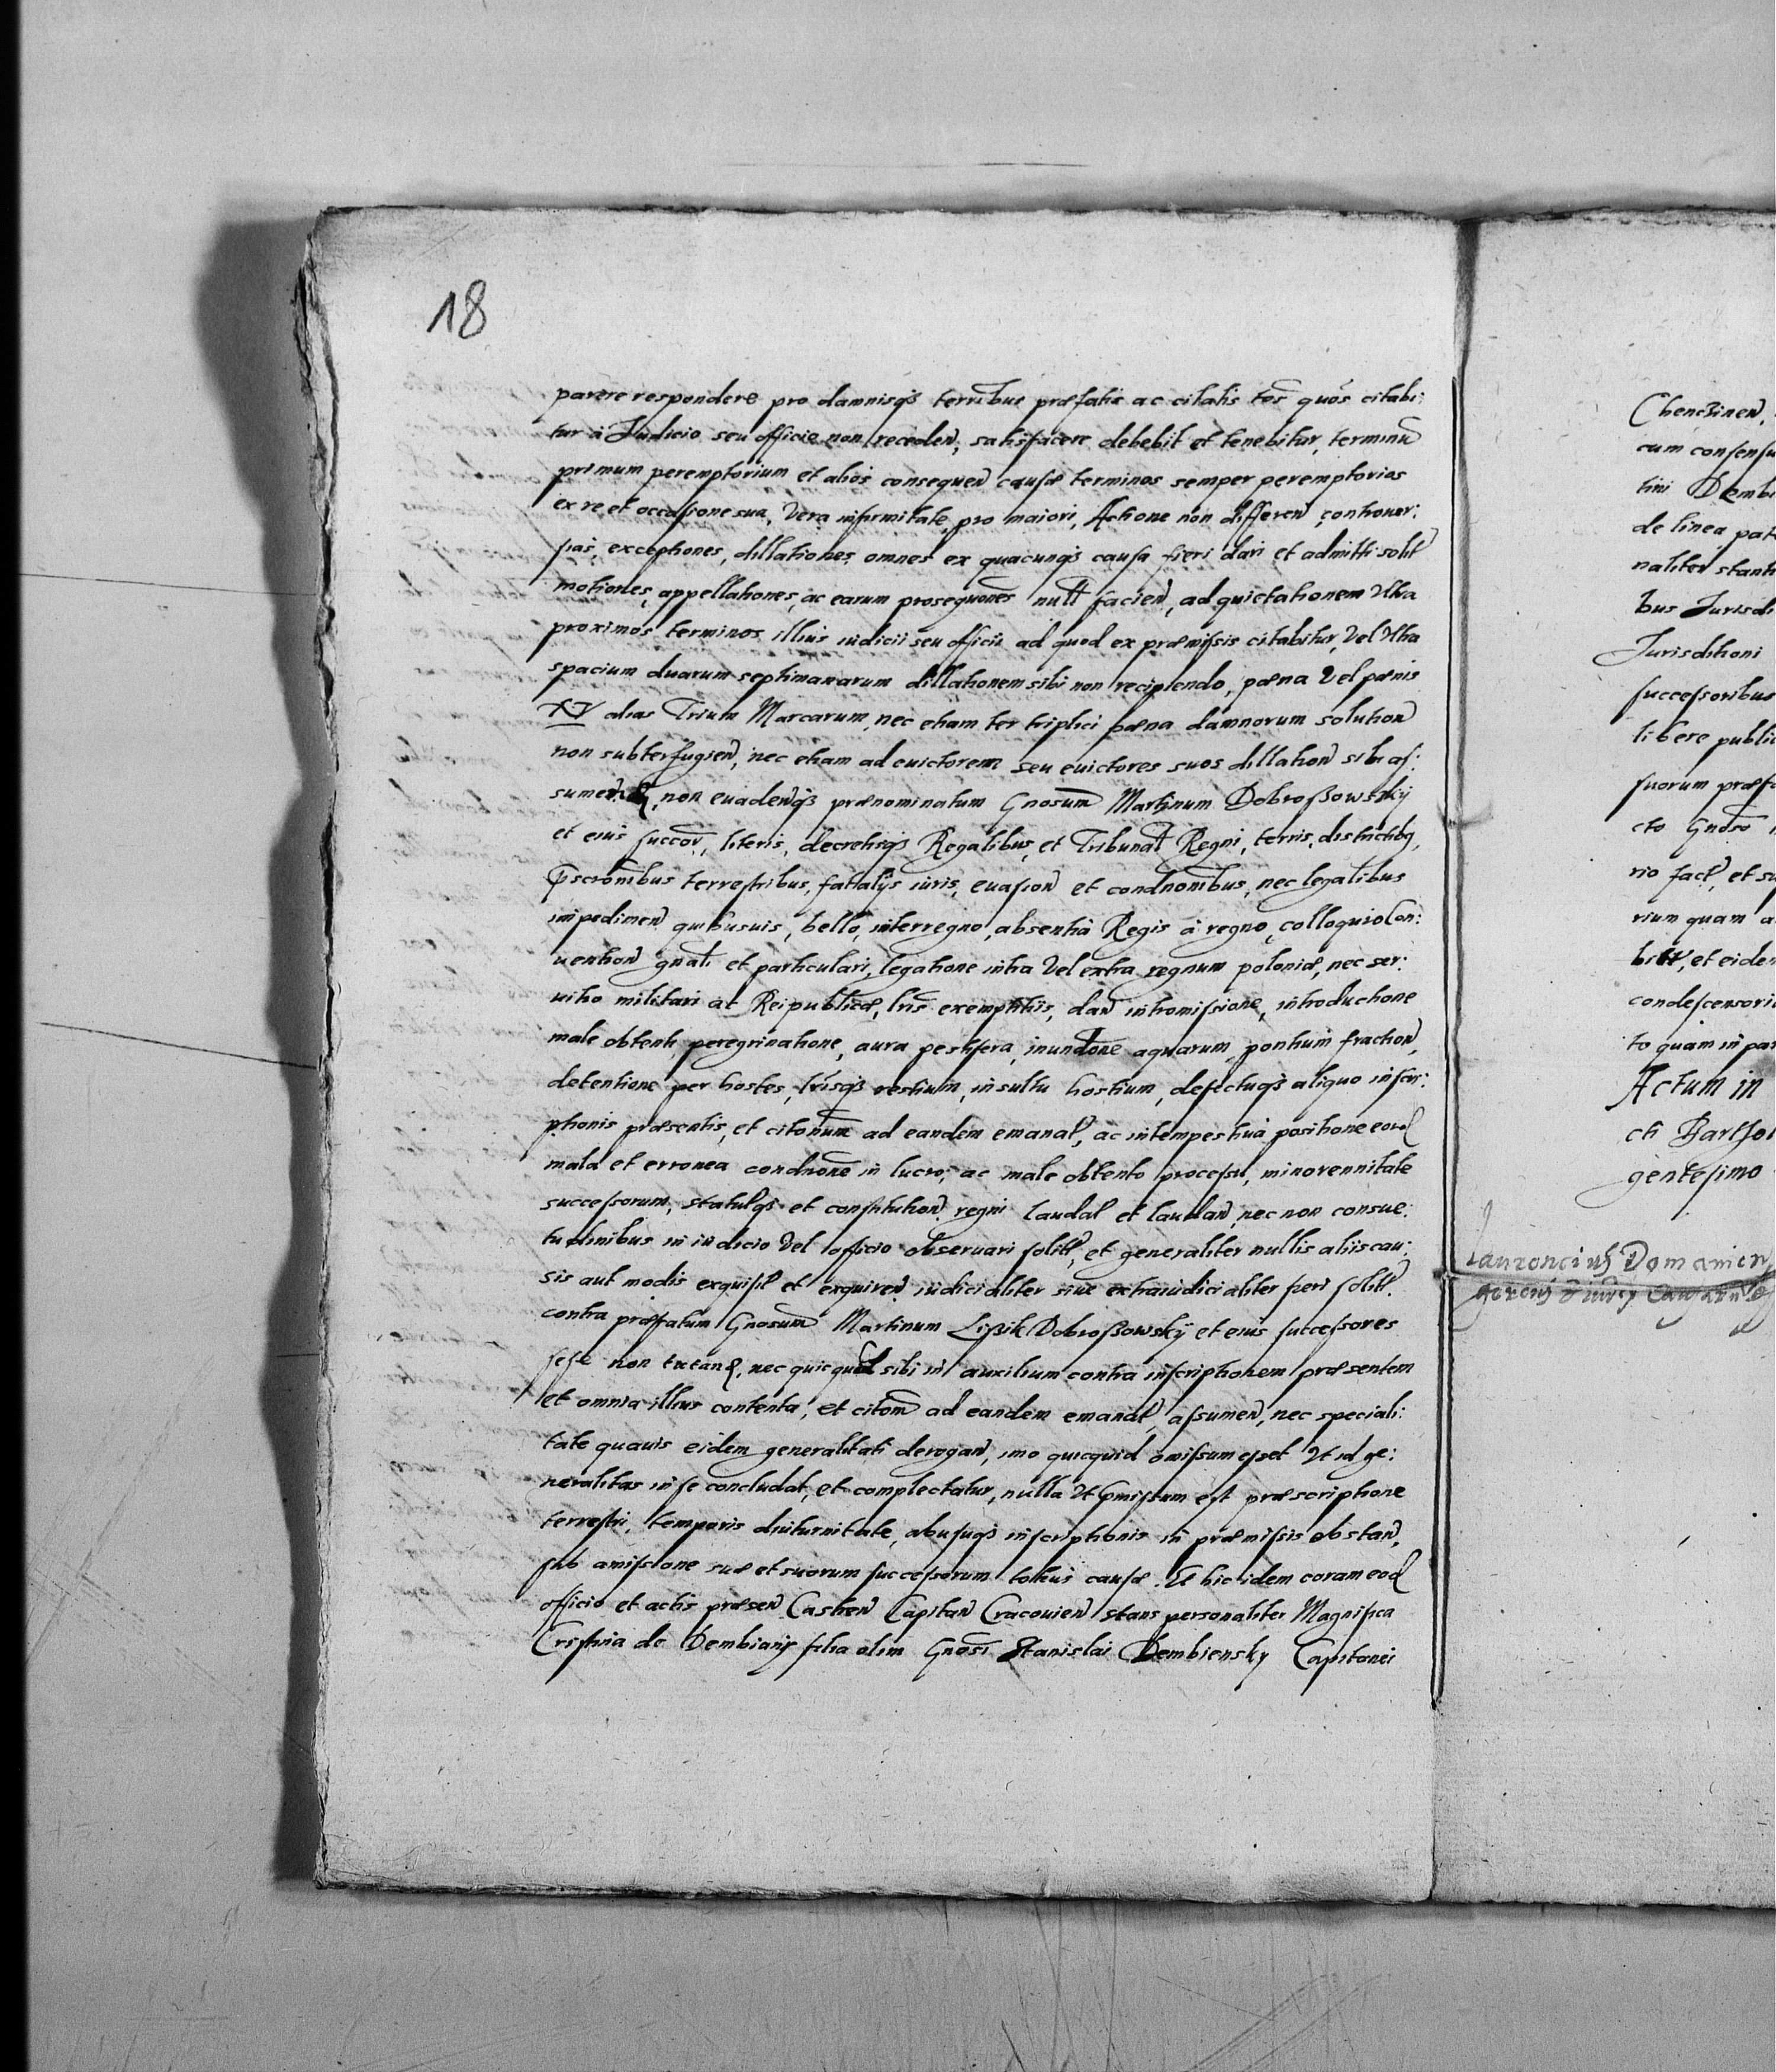 18
parere respondere pro damnisqꝫ terribus præfatis ac citatis tos̃ quos̃ citabi:
tur à Judicio seu officio non receden̄, satisfacere debebit et tenebitur, terminũ
primum peremptorium et alios consequen̄ causæ terminos semper peremptorios
ex re et occasione sua, Vera infirmitate, pro maiori, Actione non differen̄ controuer:
sias, exceptiones, dillationes omnes ex quacunqꝫ causa fieri dari et admitti solit̃
motiones, appellationes, ac earum prosequones̃ null̃ facien̄, ad quietationem Vltra
proximos terminos illius iudicii seu officii ad quod ex præmissis citabitur, Vel Vltra
spacium duarum septimanarum dillationem sibi non recipiendo, pæna Vel pænis
XV alias Trium Marcarum, nec etiam ter triplici pæna damnorum solution̄
non subterfugien̄, nec etiam ad euictorem seu euictores suos dillation̄ sibi as:
sumen̄, non euadenqꝫ prænominatum Gnosum̃ Martinum Dobroßowsky
et eius succor̃, literis, decretisqꝫ Regalibus, et Tribunal̃ Regni, terris, districtibꝫ,
Pscronibus̃ terrestribus, fatalijs iuris, euasion̄ et condnonibus̃, nec legalibus
impedimen̄ quibusuis, bello, interregno, absentia Regis à regno, colloquio Con:
uention̄ gnali et particulari, legatione intra Vel extra regnum poloniæ, nec ser:
uitio militari ac Reipublicæ, lris̃ exemptitiis, dan̄ intromissione, introductione
male obtenti peregrinatione, aura pestifera, inundtonē aquarum, pontium fraction̄,
detentione per hostes, lrisqꝫ̃ restium, insultu hostium, defectuqꝫ aliquo inscri:
ptionis præsentis, et citonum̃ ad eandem emanat̃, ac intempestiua positione eord̃
mala et erronea condnonē in lucro, ac male obtento processu, minorennitate
successorum, statutqꝫ̃ et constitution̄ regni laudat̃ et laudan̄, nec non consue:
tudinibus in iudicio Vel officio obseruari solit̃, et generaliter nullis aliis cau:
sis aut modis exquisit̃ et exquiren̄ iudicialiter siue extraiudicialiter fieri solit̃.
contra præfatum Gnosum̃ Martinum Lißik Dobroßowsky et eius successores
sese non tutan̄, nec quicquid sibi in auxilium contra inscriptionem præsentem
et omnia illius contenta, et citom̃ ad eandem emanat̃, assumen̄, nec speciali:
tate quauis eidem generalitati derogan̄, imo quicquid omissum esset Vt id ge:
neralitas in se concludat, et complectatur, nulla Vt pmissum est præscriptione
terrestri, temporis diuturnitate, abusuqꝫ inscriptionis in præmissis obstan̄,
sub amissione suæ et suorum successorum totius causæ. Et hic idem coram eod̃
officio et actis præsen̄ Castren̄ Capitan̄ Cracouien̄ stans personaliter Magnifica
Cristina de Dembiany filia olim Gnosi̇̃ Stanislai Dembiensky Capitanei
Chencinen̄,
cum consensu
tini Dembi
de linea pat
naliter stanti
bus Jurisdi
Jurisditioni
successoribus
libere public
suorum præfa
cto Gnoso̅
rio fact̃, et su
rium quam a
bitt, et eiden
condescensori
to quam in par
Actum in
cti Barthol
gentesimo
Laurencius Domanien